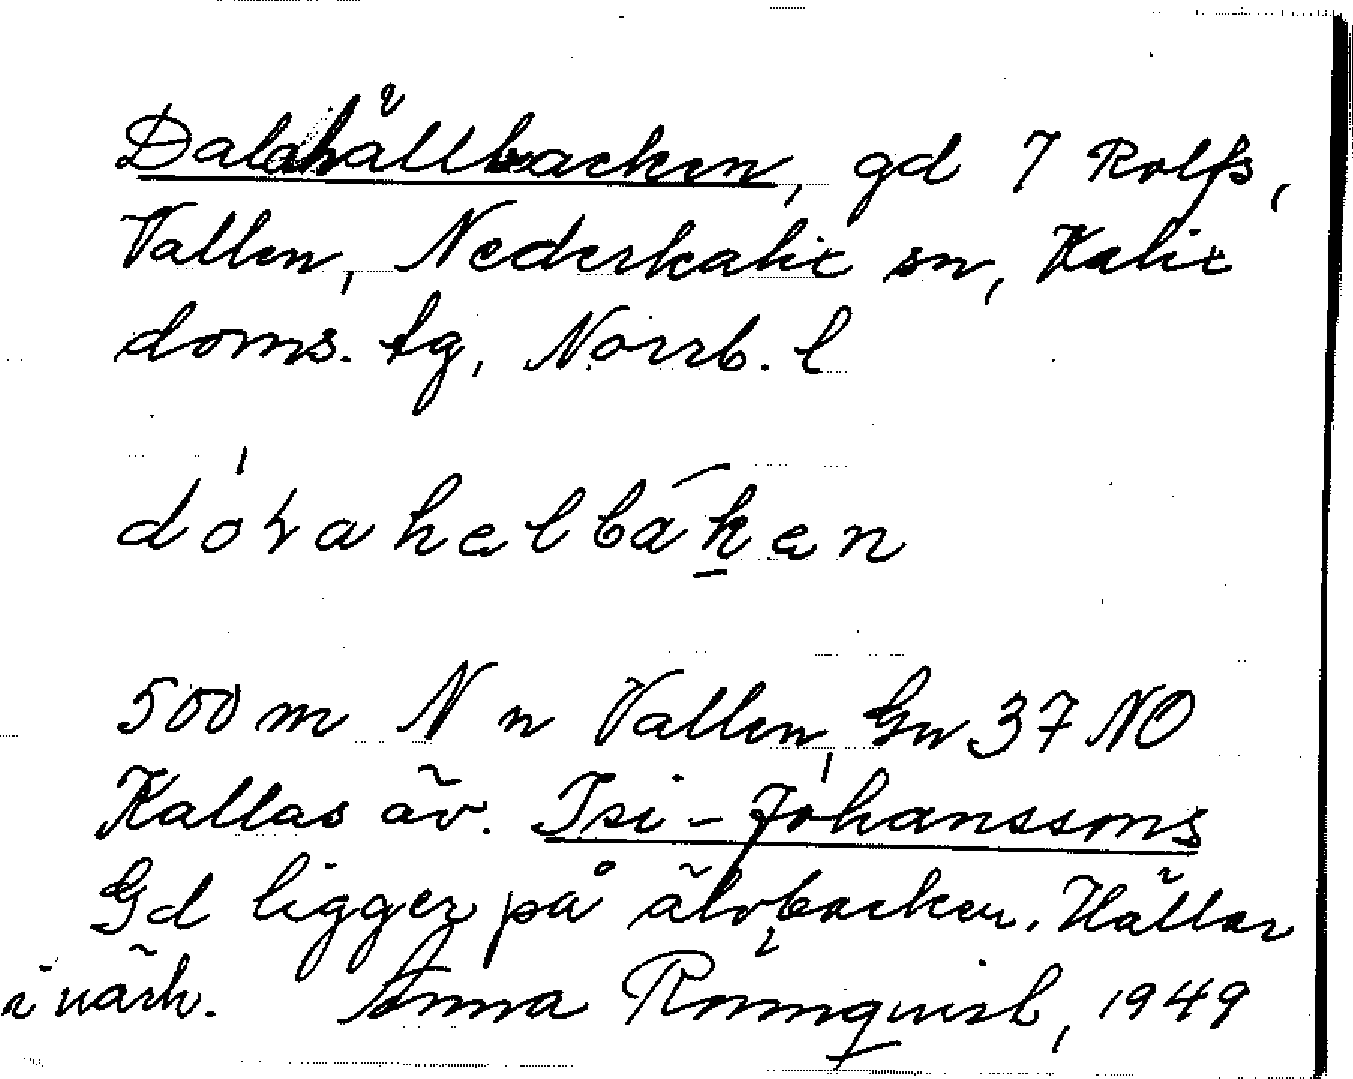 Dalahällbacken, gd 7 Rolfs,
Vallen, Nederkalix sn, Kalix
doms. tg, Norrb. l
500 m N n Vallen, Gn 37 NO
Kallas äv. Isi-Johanssons
Gd ligger på älvbacken. Hällar
i närh. Anna Rönnquist, 1949